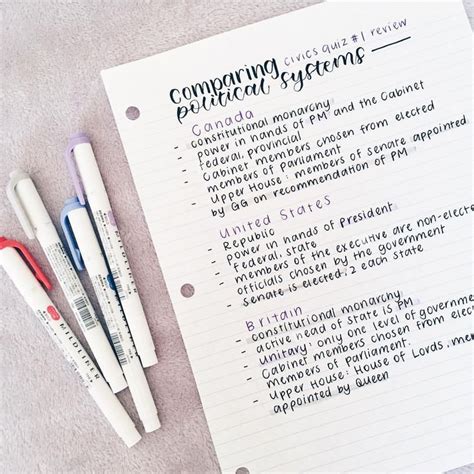 comparing civics quiz #1 review
political systems
Canada
- constitutional monarchy
- power in hands of PM and the Cabinet
- federal, provincial
- Cabinet members chosen from elected
members of Parliament
- Upper House: members of senate appointed
by GG on recommendation of PM
United States
- Republic
- power in hands of President
- federal, state
- members of the executive are non-elec
officials chosen by the government
- Senate is elected: 2 each state
Britain
- constitutional monarchy
- active head of state is PM
- unitary: only one level of governme
- Cabinet members chosen from elected
members of Parliament.
- Upper House: House of Lords, mem
appointed by Queen
MILDLINER